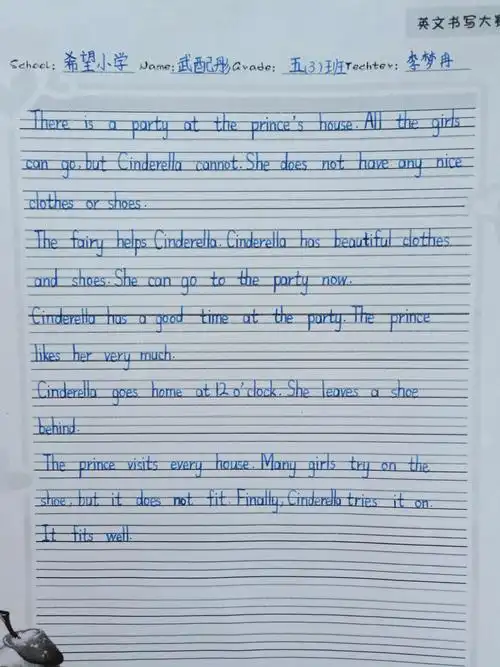 英文书写大赛
School: 希望小学 Name: 武配彤 Grade: 五(3)班 Techter: 李梦冉
There is a party at the prince's house. All the girls
can go, but Cinderella cannot. She does not have any nice
clothes or shoes.
The fairy helps Cinderella. Cinderella has beautiful clothes
and shoes. She can go to the party now.
Cinderella has a good time at the party. The prince
likes her very much.
Cinderella goes home at 12 o'clock. She leaves a shoe
behind.
The prince visits every house. Many girls try on the
shoe, but it does not fit. Finally, Cinderella tries it on.
It fits well.